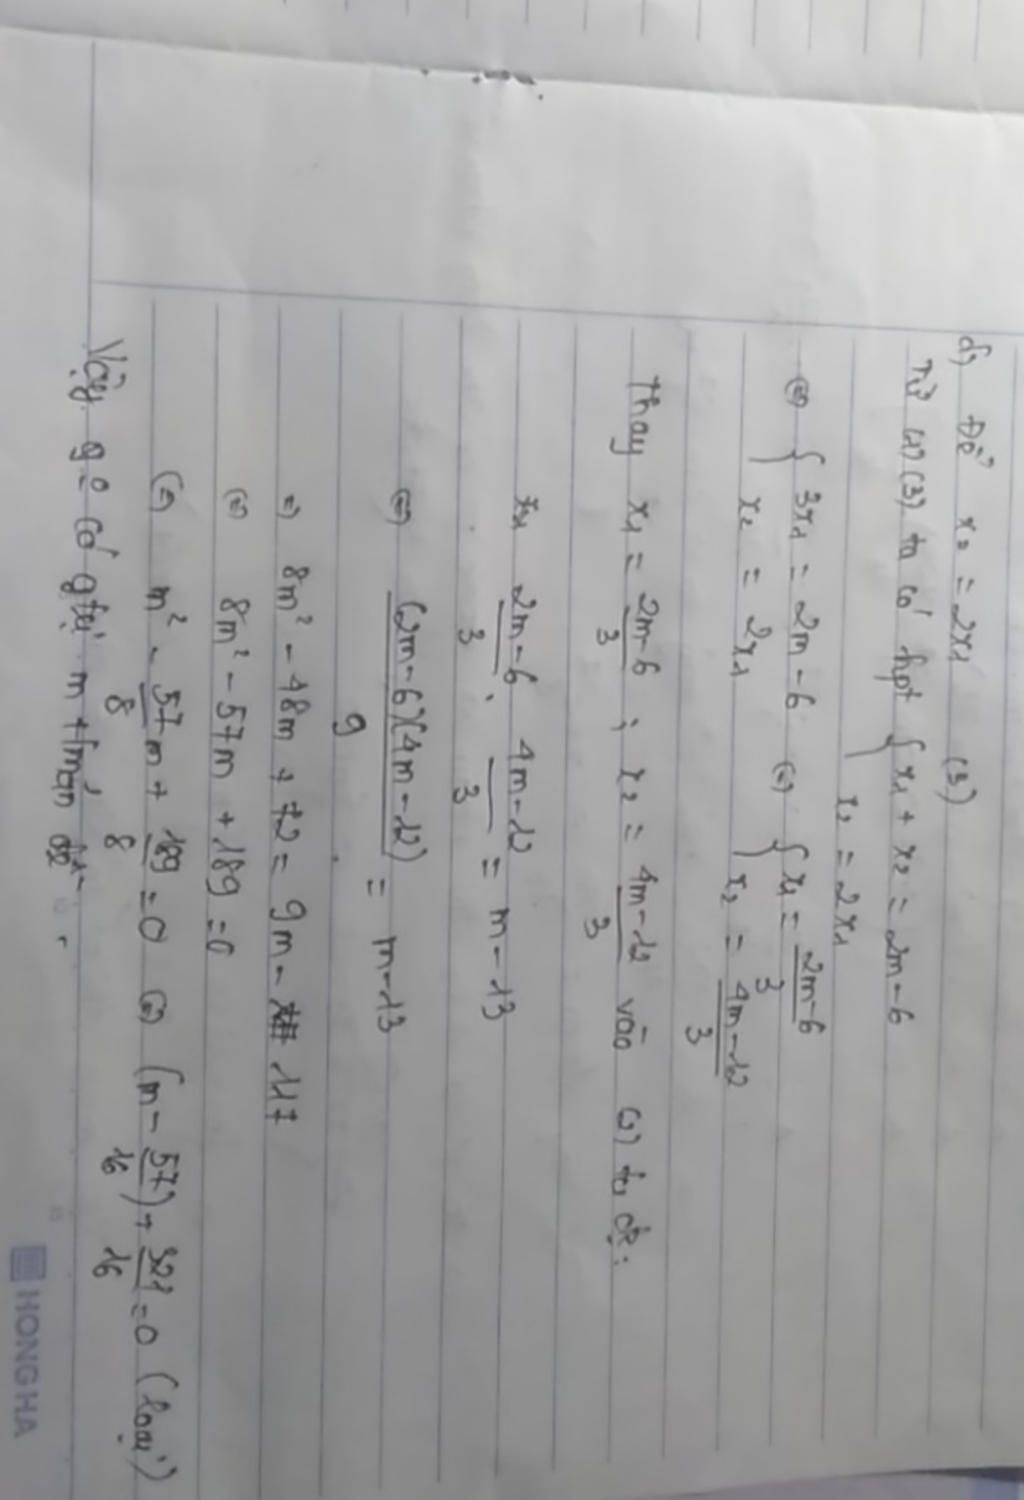 d) Để x₂ = 2x₁ (3)
Từ (1) (3) ta có hpt { x₁ + x₂ = 2m - 6
x₂ = 2x₁
(=) { 3x₁ = 2m - 6 (=) { x₁ = (2m-6)/3
x₂ = 2x₁ x₂ = (4m-12)/3
Thay x₁ = (2m-6)/3 ; x₂ = (4m-12)/3 vào ta đc:
(2m-6)/3 . (4m-12)/3 = m - 13
(=) (2m-6)(4m-12)/9 = m - 13
=) 8m² - 48m + 72 = 9m - 117
(=) 8m² - 57m + 189 = 0
(=) m² - 57/8 m + 189/8 = 0 (=) (m - 57/16) + 321/16 = 0 (loại)
Vậy có gtrị m t/mãn
HONG HA